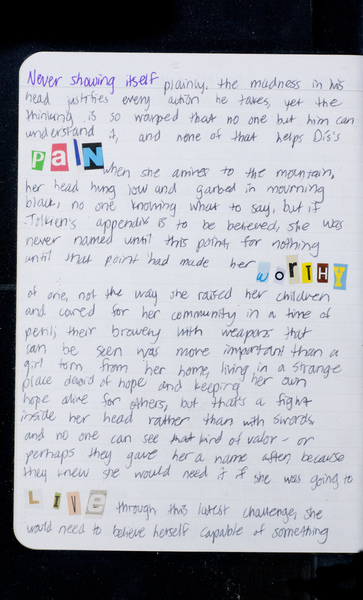 Never showing itself plainly. the madness in his
head justifies every action he takes, yet the
thinking is so warped that no one but him can
understand it, and none of that helps Dís's
PaIN when she arrives to the mountain,
her head hung low and garbed in mourning
black, no one knowing what to say, but if
Tolkien's appendix is to be believed, she was
never named until this point, for nothing
until that point had made her woRTHY
of one, not the way she raised her children
and cared for her community in a time of
peril, their bravery with weapons that
can be seen was more important than a
girl torn from her home, living in a strange
place devoid of hope and keeping her own
hope alive for others, but that's a fight
inside her head rather than with swords
and no one can see that kind of valor - or
perhaps they gave her a name after, because
they knew she would need it if she was going to
LIVe through this latest challenge, she
would need to believe herself capable of something